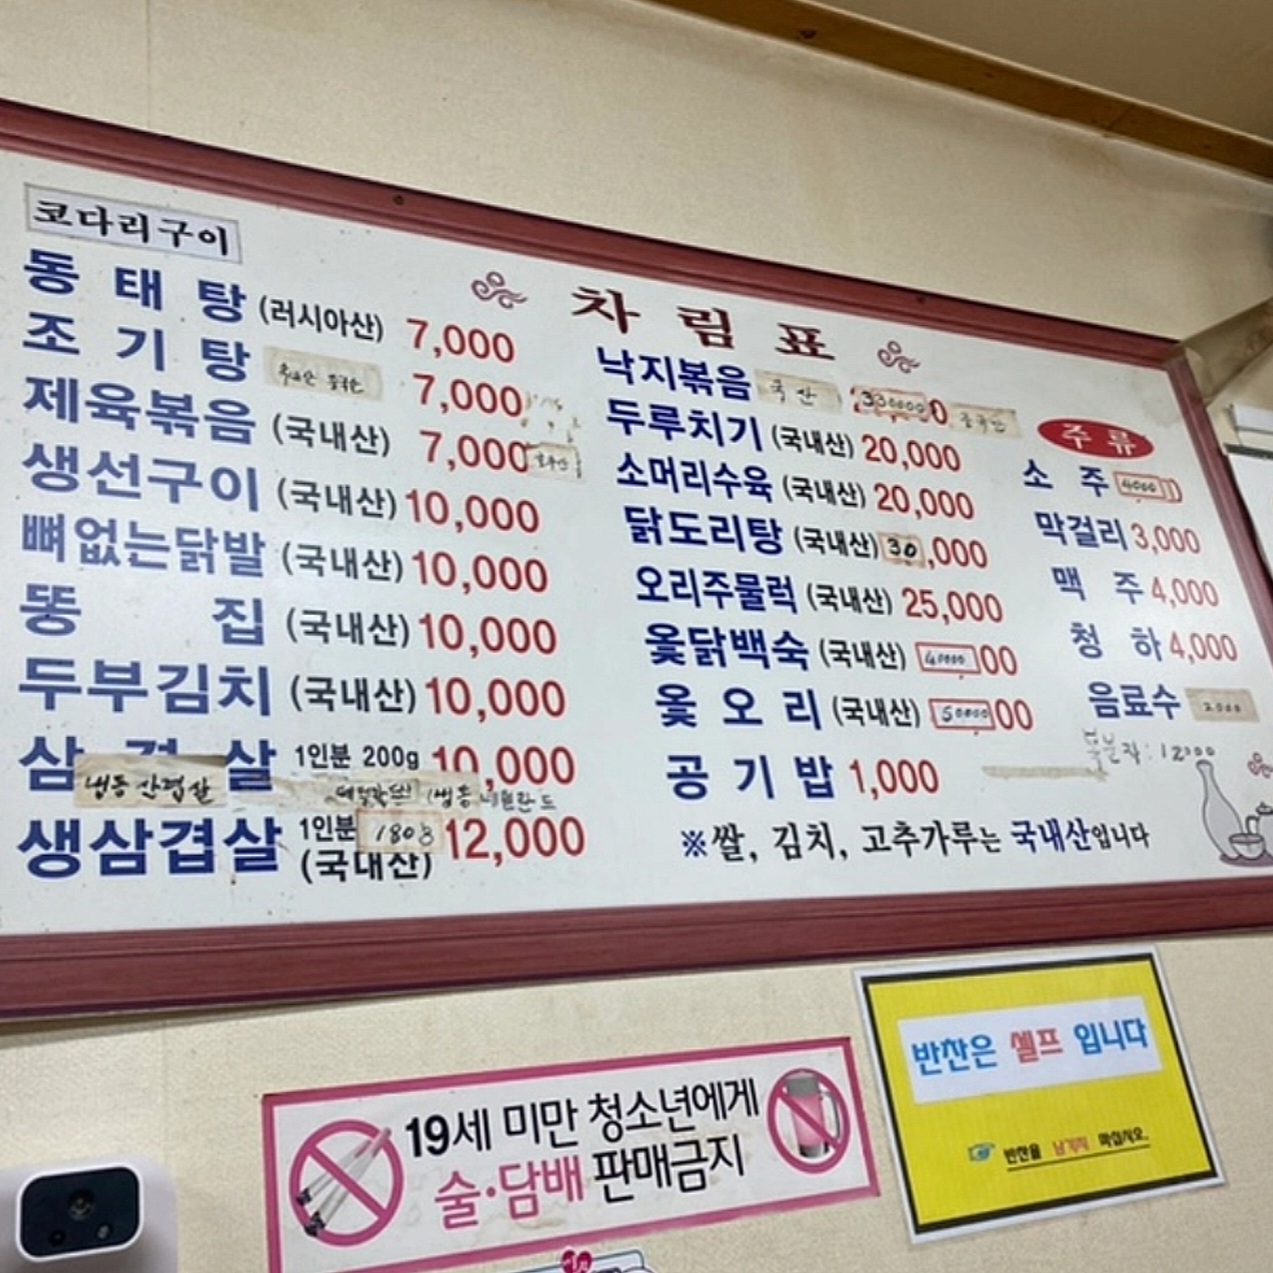 코다리구이
차림표
동태탕 (러시아산) 7,000
조기탕 7,000
제육볶음 (국내산) 7,000
생선구이 (국내산) 10,000
뼈없는닭발 (국내산) 10,000
똥집 (국내산) 10,000
두부김치 (국내산) 10,000
삼겹살 1인분 200g 10,000
냉동 삼겹살
생삼겹살 1인분 180g 12,000
(국내산)
낙지볶음 국산
두루치기 (국내산) 20,000
소머리수육 (국내산) 20,000
닭도리탕 (국내산) 30,000
오리주물럭 (국내산) 25,000
옻닭백숙 (국내산) 40000
옻오리 (국내산) 50000
공기밥 1,000
※쌀, 김치, 고추가루는 국내산입니다
주류
소주 4000
막걸리 3,000
맥주 4,000
청하 4,000
음료수 2000
12000
19세 미만 청소년에게
술·담배 판매금지
반찬은 셀프 입니다
반찬을 남기지 마십시오.